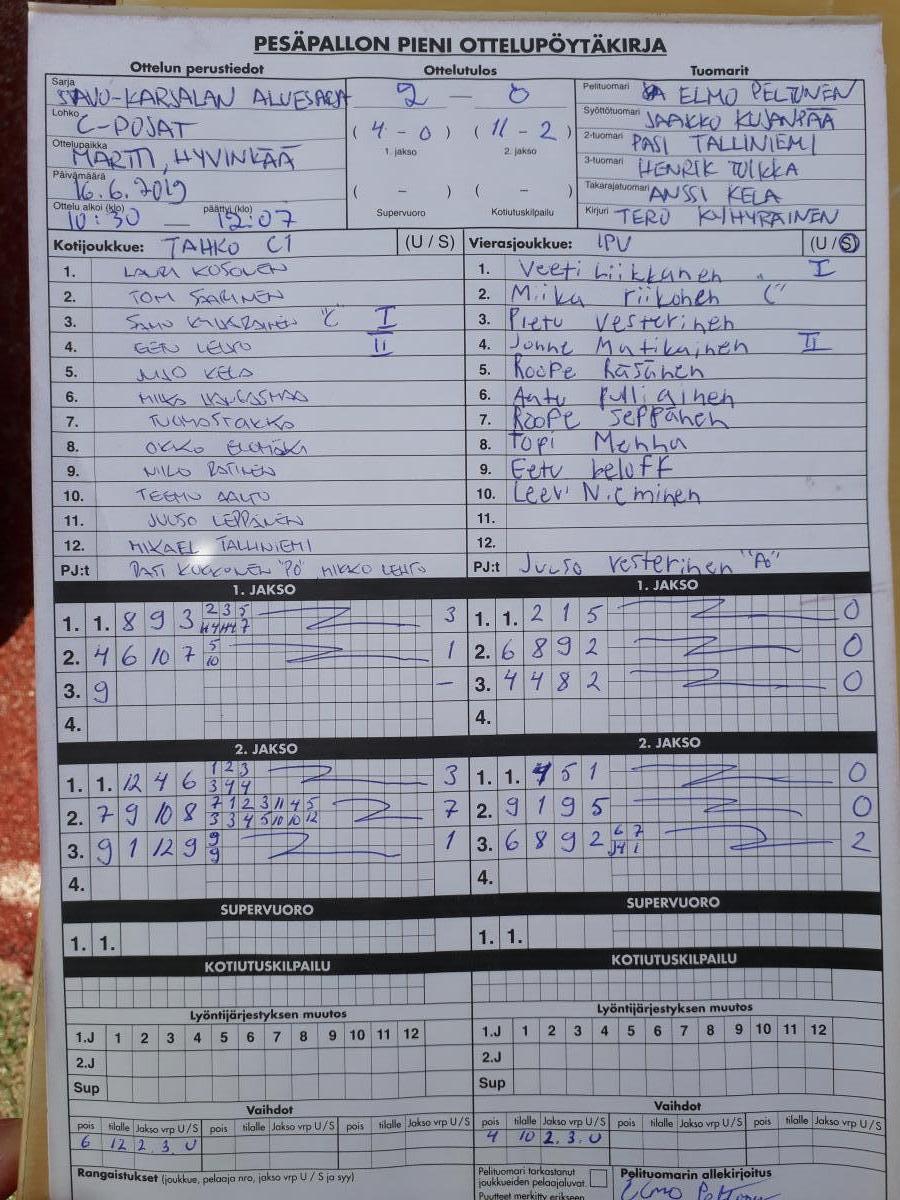 PESÄPALLON PIENI OTTELUPÖYTÄKIRJA
Ottelun perustiedot Ottelutulos Tuomarit
Sarja SAVO-KARJALAN ALUESARJA
Lohko C-POJAT
Ottelupaikka MARTTI, HYVINKÄÄ
Päivämäärä 16.6.2019
Ottelu alkoi (klo) 10:30 — päättyi (klo) 12:07
2 — 0
( 4 - 0 ) ( 11 - 2 )
1. jakso 2. jakso
( - ) ( - )
Supervuoro Kotiutuskilpailu
Pelituomari ELMO PELTONEN
Syöttötuomari JAAKKO KUJANPÄÄ
2-tuomari PASI TALLINIEMI
3-tuomari HENRIK TUIKKA
Takarajatuomari ANSSI KELA
Kirjuri TERO KYHYRÄINEN
Kotijoukkue: TAHKO C1 (U / S)
1. LAURI KOSONEN
2. TOMI SAARINEN
3. SAMU KYHYRÄINEN "C" I
4. EETU LEHTO II
5. JUSO KELA
6. MIKA
7. TUOMOS TAKKO
8. OKKO
9. NILO RATINEN
10. TEEMU AALTO
11. JUUSO LEPPÄNEN
12. MIKAEL TALLINIEMI
PJ:t PASI KOKKONEN "PÖ" MIKKO LEHTO
Vierasjoukkue: IPV (U / S)
1. Veeti Liikkanen I
2. Miika riikonen C"
3. Pietu Vesterinen
4. Jonne Matikainen II
5. Roope Räsänen
6. Aatu Pulliainen
7. Roope Seppänen
8. Topi Menna
9. Eetu beloff
10. Leevi Nieminen
11.
12.
PJ:t Juuso Vesterinen "Ao"
1. JAKSO
1. 1. 8 9 3 2 3 5 3
11 4 7
2. 4 6 10 7 5 1
10
3. 9 —
4.
1. JAKSO
1. 1. 2 1 5 0
2. 6 8 9 2 0
3. 4 4 8 2 0
4.
2. JAKSO
1. 1. 12 4 6 1 2 3 3
3 4 4
2. 7 9 10 8 7 1 2 3 11 4 5 7
3 3 4 5 10 10 12
3. 9 1 12 9 9 1
9
4.
2. JAKSO
1. 1. 5 1 0
2. 9 1 9 5 0
3. 6 8 9 2 6 7 2
4 1
4.
SUPERVUORO SUPERVUORO
1. 1. 1. 1.
KOTIUTUSKILPAILU KOTIUTUSKILPAILU
Lyöntijärjestyksen muutos Lyöntijärjestyksen muutos
1.J 1 2 3 4 5 6 7 8 9 10 11 12 1.J 1 2 3 4 5 6 7 8 9 10 11 12
2.J 2.J
Sup Sup
Vaihdot Vaihdot
pois tilalle Jakso vrp U / S pois tilalle Jakso vrp U / S pois tilalle Jakso vrp U / S pois tilalle Jakso vrp U / S pois tilalle Jakso vrp U / S pois tilalle Jakso vrp U / S
6 12 2. 3. U 4 10 2. 3. U
Rangaistukset (joukkue, pelaaja nro, jakso vrp U / S ja syy)
Pelituomari tarkastanut
joukkueiden pelaajaluvat.
Puutteet merkitty erikseen
Pelituomarin allekirjoitus
Elmo Peltonen